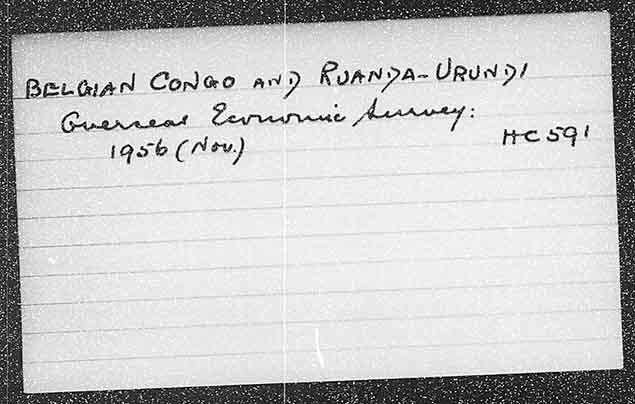 BELGIAN CONGO AND RUANDA-URUNDI
Overseas Economic Survey:
1956 (Nov.)
HC 591